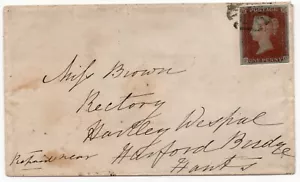 POSTAGE
ONE PENNY
Miss Brown
Rectory
Hartley Wespal
Hartford Bridge
Hants
near